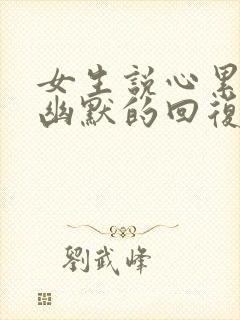 女生說心累
幽默的回復
劉武峰